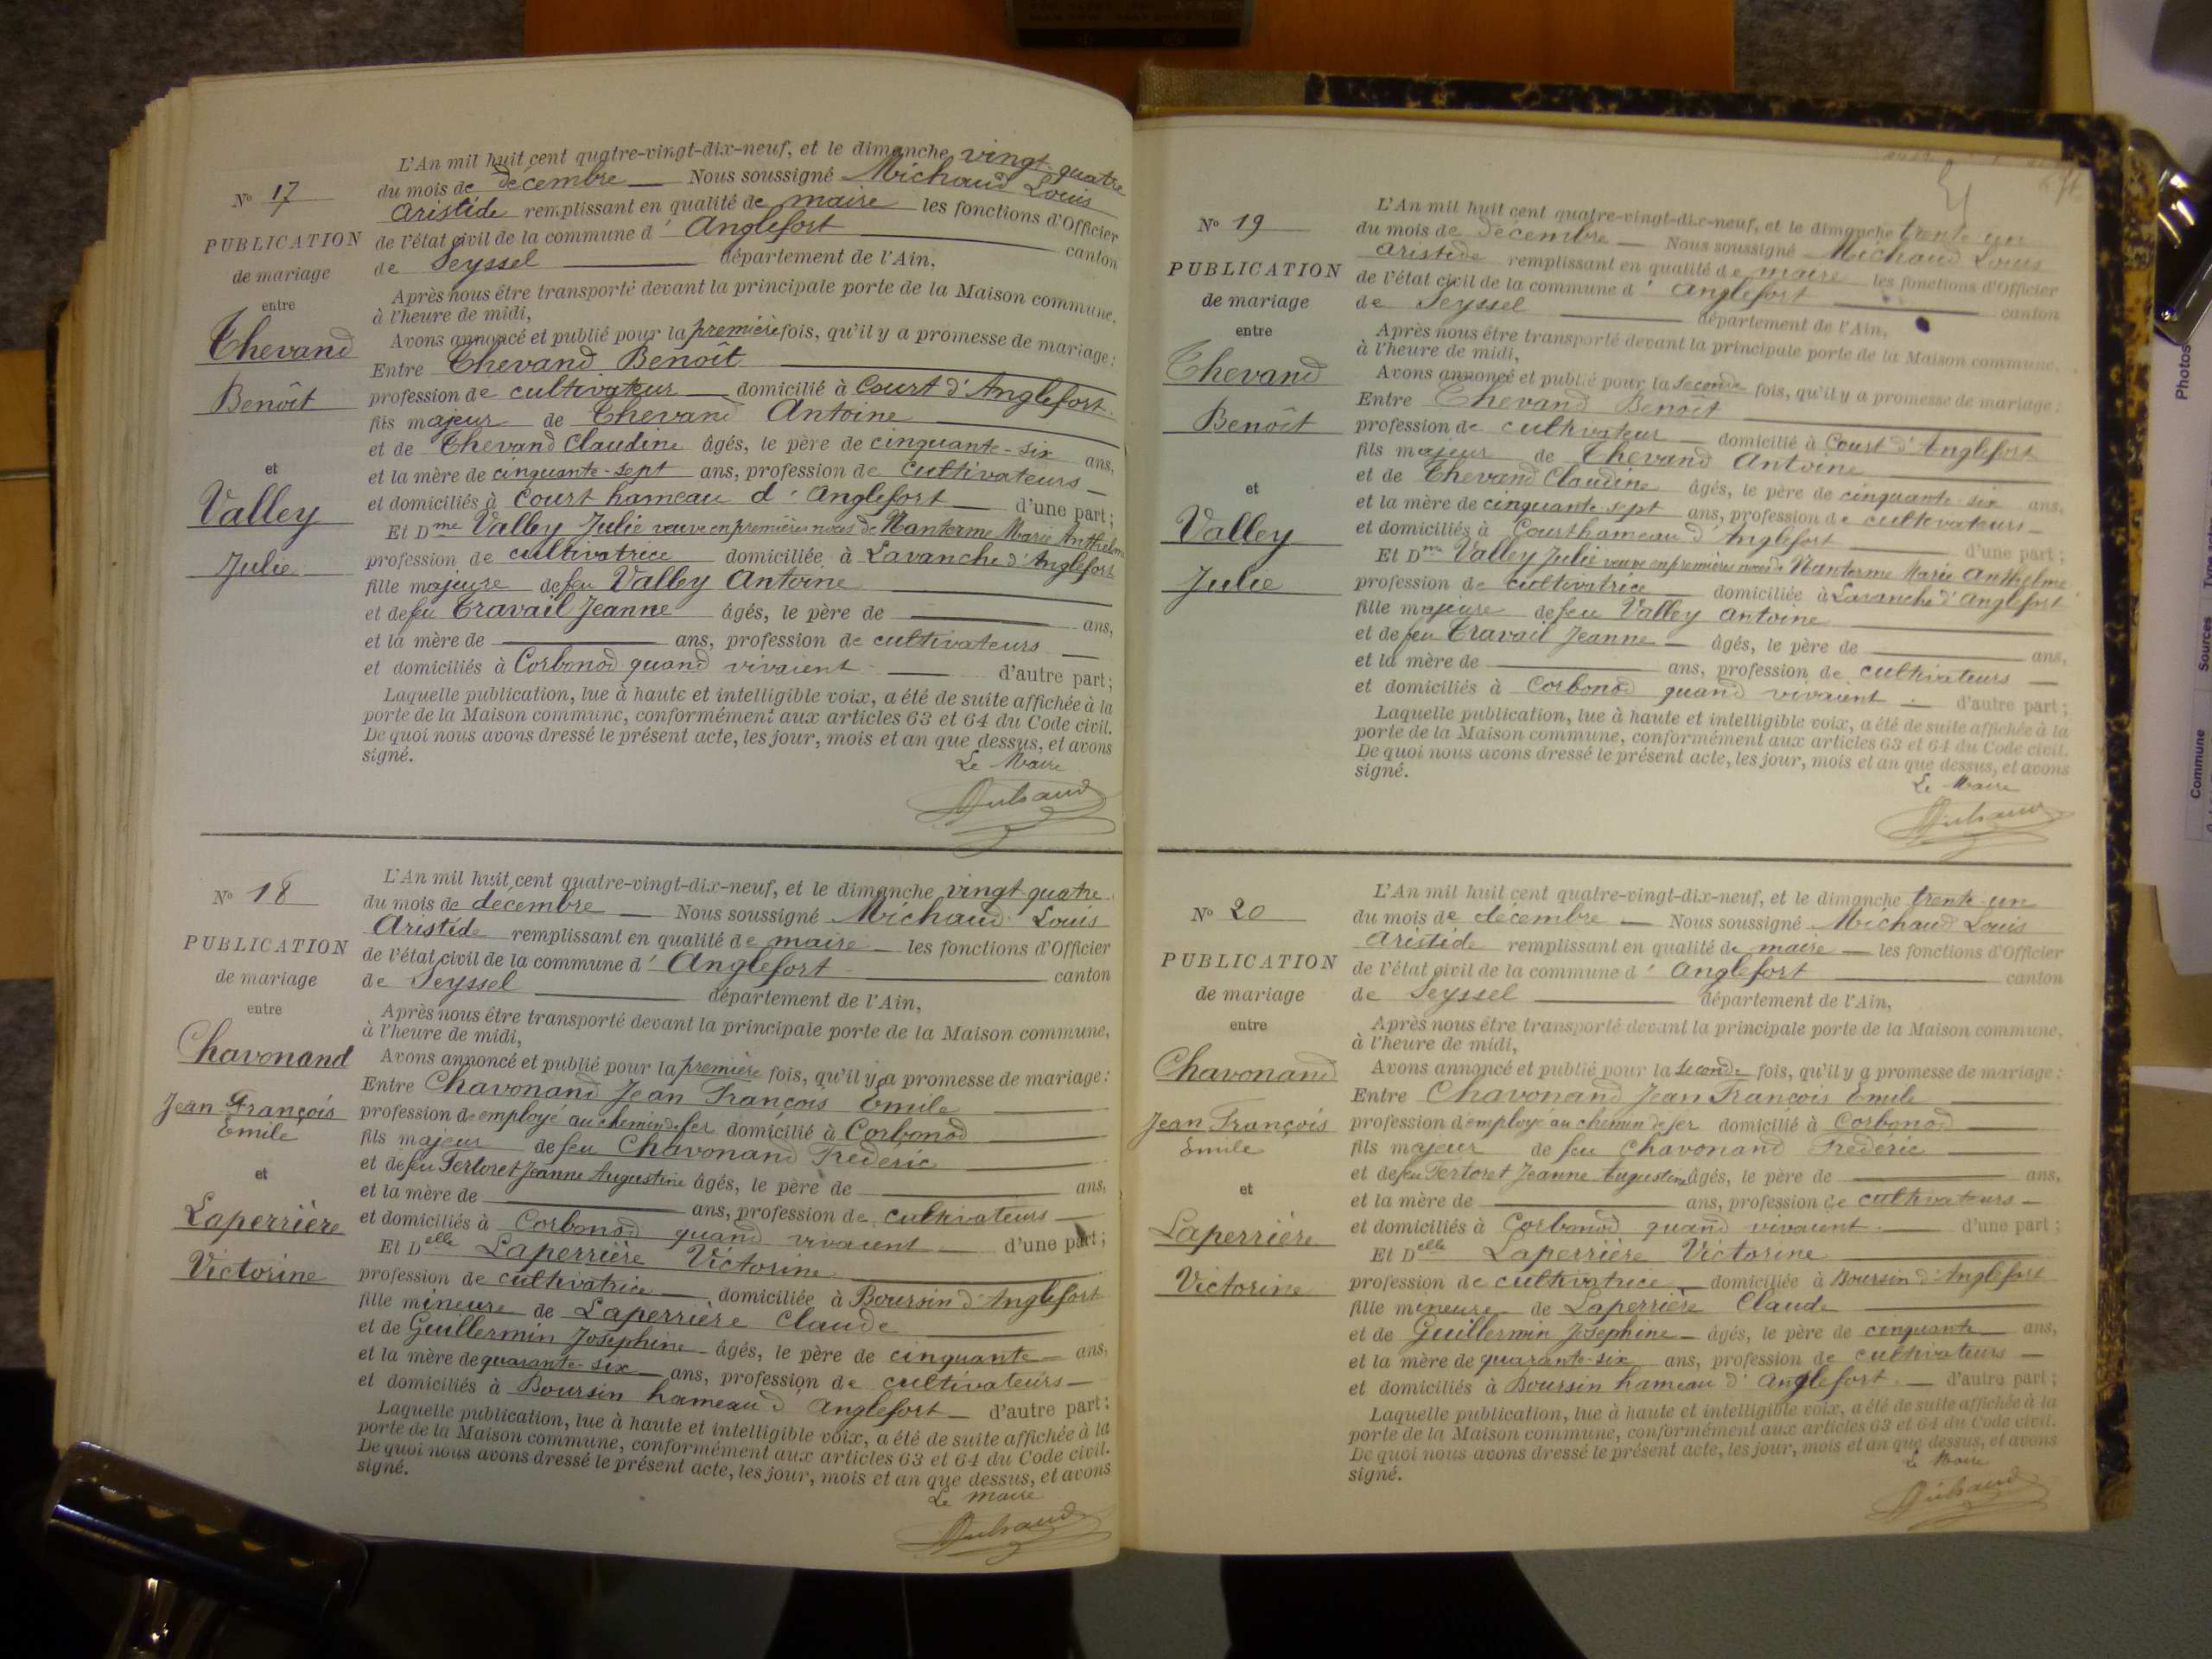 N° 17
PUBLICATION
de mariage
entre
Thevand
Benoît
et
Valley
Julie
L'An mil huit cent quatre-vingt-dix-neuf, et le dimanche vingt-quatre
du mois de décembre — Nous soussigné Michaud Louis
Aristide remplissant en qualité de maire les fonctions d'Officier
de l'état civil de la commune d' Anglefort canton
de Seyssel département de l'Ain,
Après nous être transporté devant la principale porte de la Maison commune,
à l'heure de midi,
Avons annoncé et publié pour la première fois, qu'il y a promesse de mariage :
Entre Thevand Benoît
profession de cultivateur domicilié à Court d'Anglefort
fils majeur de Thevand Antoine
et de Thevand Claudine âgés, le père de cinquante-six ans,
et la mère de cinquante-sept ans, profession de cultivateurs
et domiciliés à Court hameau d'Anglefort d'une part ;
Et Dme Valley Julie veuve en premières noces de Nanterme Marie Anthelme
profession de cultivatrice domiciliée à Lavanche d'Anglefort
fille majeure de feu Valley Antoine
et de feu Travail Jeanne âgés, le père de ans,
et la mère de ans, profession de cultivateurs
et domiciliés à Corbonod quand vivaient d'autre part ;
Laquelle publication, lue à haute et intelligible voix, a été de suite affichée à la
porte de la Maison commune, conformément aux articles 63 et 64 du Code civil.
De quoi nous avons dressé le présent acte, les jour, mois et an que dessus, et avons
signé.
Le Maire
N° 18
PUBLICATION
de mariage
entre
Chavonand
Jean François
Emile
et
Laperrière
Victorine
L'An mil huit cent quatre-vingt-dix-neuf, et le dimanche vingt-quatre
du mois de décembre — Nous soussigné Michaud Louis
Aristide remplissant en qualité de maire les fonctions d'Officier
de l'état civil de la commune d' Anglefort canton
de Seyssel département de l'Ain,
Après nous être transporté devant la principale porte de la Maison commune,
à l'heure de midi,
Avons annoncé et publié pour la première fois, qu'il y a promesse de mariage :
Entre Chavonand Jean François Emile
profession de employé au chemin de fer domicilié à Corbonod
fils majeur de feu Chavonand Frédéric
et de feu Fertoret Jeanne Augustine âgés, le père de ans,
et la mère de ans, profession de cultivateurs
et domiciliés à Corbonod quand vivaient d'une part ;
Et Delle Laperrière Victorine
profession de cultivatrice domiciliée à Boursin d'Anglefort
fille mineure de Laperrière Claude
et de Guillermin Joséphine âgés, le père de cinquante ans,
et la mère de quarante-six ans, profession de cultivateurs
et domiciliés à Boursin hameau d'Anglefort d'autre part ;
Laquelle publication, lue à haute et intelligible voix, a été de suite affichée à la
porte de la Maison commune, conformément aux articles 63 et 64 du Code civil.
De quoi nous avons dressé le présent acte, les jour, mois et an que dessus, et avons
signé.
Le Maire
N° 19
PUBLICATION
de mariage
entre
Thevand
Benoît
et
Valley
Julie
L'An mil huit cent quatre-vingt-dix-neuf, et le dimanche trente un
du mois de décembre — Nous soussigné Michaud Louis
Aristide remplissant en qualité de maire les fonctions d'Officier
de l'état civil de la commune d' Anglefort canton
de Seyssel département de l'Ain,
Après nous être transporté devant la principale porte de la Maison commune,
à l'heure de midi,
Avons annoncé et publié pour la seconde fois, qu'il y a promesse de mariage :
Entre Thevand Benoît
profession de cultivateur domicilié à Court d'Anglefort
fils majeur de Thevand Antoine
et de Thevand Claudine âgés, le père de cinquante-six ans,
et la mère de cinquante-sept ans, profession de cultivateurs
et domiciliés à Court hameau d'Anglefort d'une part ;
Et Dme Valley Julie veuve en premières noces de Nanterme Marie Anthelme
profession de cultivatrice domiciliée à Lavanche d'Anglefort
fille majeure de feu Valley Antoine
et de feu Travail Jeanne âgés, le père de ans,
et la mère de ans, profession de cultivateurs
et domiciliés à Corbonod quand vivaient d'autre part ;
Laquelle publication, lue à haute et intelligible voix, a été de suite affichée à la
porte de la Maison commune, conformément aux articles 63 et 64 du Code civil.
De quoi nous avons dressé le présent acte, les jour, mois et an que dessus, et avons
signé.
Le Maire
N° 20
PUBLICATION
de mariage
entre
Chavonand
Jean François
Emile
et
Laperrière
Victorine
L'An mil huit cent quatre-vingt-dix-neuf, et le dimanche trente-un
du mois de décembre — Nous soussigné Michaud Louis
Aristide remplissant en qualité de maire les fonctions d'Officier
de l'état civil de la commune d' Anglefort canton
de Seyssel département de l'Ain,
Après nous être transporté devant la principale porte de la Maison commune,
à l'heure de midi,
Avons annoncé et publié pour la seconde fois, qu'il y a promesse de mariage :
Entre Chavonand Jean François Emile
profession d'employé au chemin de fer domicilié à Corbonod
fils majeur de feu Chavonand Frédéric
et de feu Fertoret Jeanne Augustine âgés, le père de ans,
et la mère de ans, profession de cultivateurs
et domiciliés à Corbonod quand vivaient d'une part ;
Et Delle Laperrière Victorine
profession de cultivatrice domiciliée à Boursin d'Anglefort
fille mineure de Laperrière Claude
et de Guillermin Joséphine âgés, le père de cinquante ans,
et la mère de quarante-six ans, profession de cultivateurs
et domiciliés à Boursin hameau d'Anglefort d'autre part ;
Laquelle publication, lue à haute et intelligible voix, a été de suite affichée à la
porte de la Maison commune, conformément aux articles 63 et 64 du Code civil.
De quoi nous avons dressé le présent acte, les jour, mois et an que dessus, et avons
signé.
Le Maire
Photos
Sources
Commune